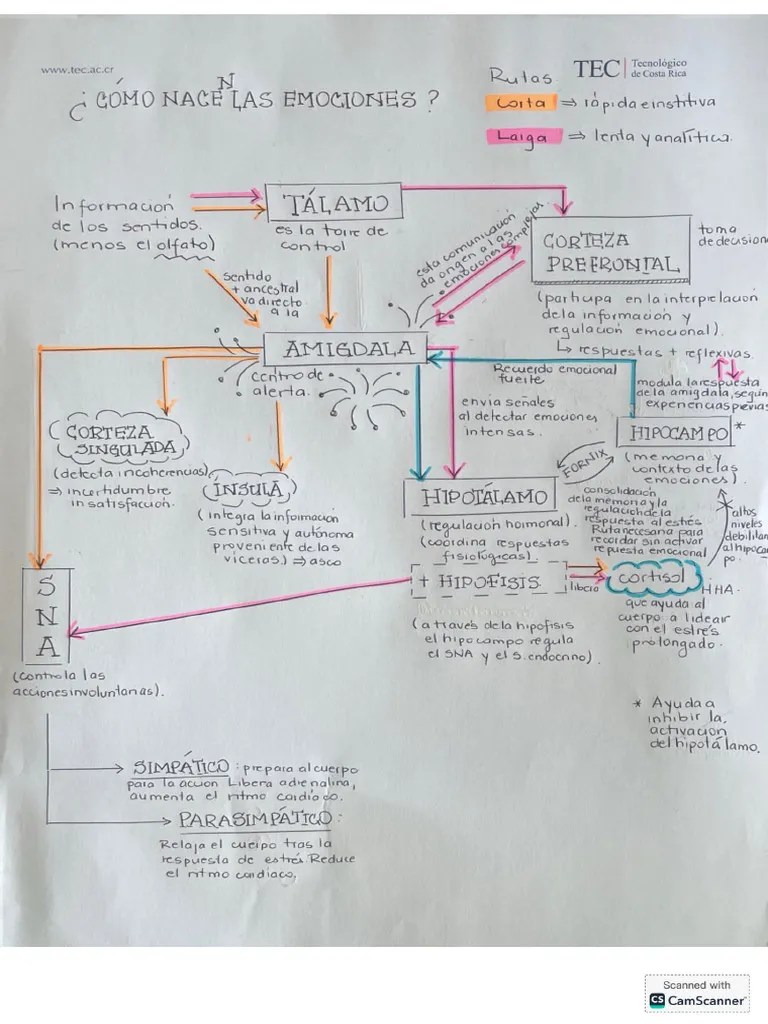 www.tec.ac.cr
TEC | Tecnológico
de Costa Rica
¿CÓMO NACEN LAS EMOCIONES?
Rutas
Corta ⇒ rápida e institiva
Larga ⇒ lenta y analítica.
Información
de los sentidos.
(menos el olfato)
TÁLAMO
es la torre de
control
sentido
+ ancestral
va directo
a la
esta comunicación
da origen a las
emociones complejas.
CORTEZA
PREFRONTAL
toma
de decision
(participa en la interpretación
de la información y
regulación emocional).
↳ respuestas + reflexivas.
modula la respuesta
de la amígdala, según
experiencias previas
AMIGDALA
centro de
alerta.
Recuerdo emocional
fuerte
envia señales
al detectar emociones
intensas.
HIPOCAMPO *
(memoria y
contexto de las
emociones).
FORNIX
CORTEZA
SINGULADA
(detecta incoherencias)
⇒ incertidumbre
insatisfacción.
ÍNSULA
(integra la información
sensitiva y autónoma
proveniente de las
víceras) ⇒ asco
HIPOTÁLAMO
(regulación hormonal)
(coordina respuestas
fisiológicas).
consolidación
de la memoria y la
regulación de la
respuesta al estrés
Ruta necesaria para
recordar sin activar
repuesta emocional
* altos
niveles
debilitan
al hipocam
po.
+ HIPOFISIS
libera
cortisol
HHA.
que ayuda al
cuerpo a lidear
con el estrés
prolongado.
(a través de la hipofisis
el hipocampo regula
el SNA y el S. endocrino).
SNA
(controla las
acciones involuntarias).
* Ayuda a
inhibir la
activación
del hipotálamo.
SIMPÁTICO: prepara al cuerpo
para la acción Libera adrenalina,
aumenta el ritmo cardíaco.
PARASIMPÁTICO:
Relaja el cuerpo tras la
respuesta de estrés Reduce
el ritmo cardiaco.
Scanned with
CS CamScanner